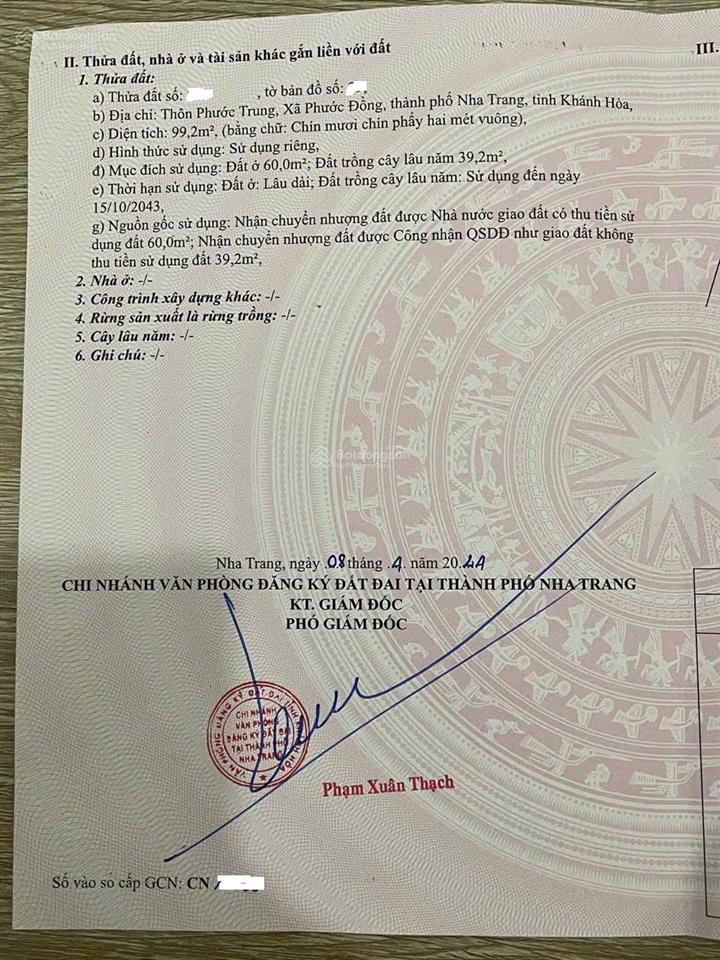 II. Thửa đất, nhà ở và tài sản khác gắn liền với đất
III.
1. Thửa đất:
a) Thửa đất số: , tờ bản đồ số: ,
b) Địa chỉ: Thôn Phước Trung, Xã Phước Đồng, thành phố Nha Trang, tỉnh Khánh Hòa,
c) Diện tích: 99,2m², (bằng chữ: Chín mươi chín phẩy hai mét vuông),
d) Hình thức sử dụng: Sử dụng riêng,
đ) Mục đích sử dụng: Đất ở 60,0m²; Đất trồng cây lâu năm 39,2m²,
e) Thời hạn sử dụng: Đất ở: Lâu dài; Đất trồng cây lâu năm: Sử dụng đến ngày
15/10/2043,
g) Nguồn gốc sử dụng: Nhận chuyển nhượng đất được Nhà nước giao đất có thu tiền sử
dụng đất 60,0m²; Nhận chuyển nhượng đất được Công nhận QSDĐ như giao đất không
thu tiền sử dụng đất 39,2m²,
2. Nhà ở: -/-
3. Công trình xây dựng khác: -/-
4. Rừng sản xuất là rừng trồng: -/-
5. Cây lâu năm: -/-
6. Ghi chú: -/-
Batdongsan
Nha Trang, ngày 08 tháng 4 năm 2024
CHI NHÁNH VĂN PHÒNG ĐĂNG KÝ ĐẤT ĐAI TẠI THÀNH PHỐ NHA TRANG
KT. GIÁM ĐỐC
PHÓ GIÁM ĐỐC
VĂN PHÒNG ĐĂNG KÝ ĐẤT ĐAI TỈNH KHÁNH HÒA
CHI NHÁNH
VĂN PHÒNG
ĐĂNG KÝ ĐẤT ĐAI
TẠI THÀNH PHỐ
NHA TRANG
Phạm Xuân Thạch
Số vào sổ cấp GCN: CN